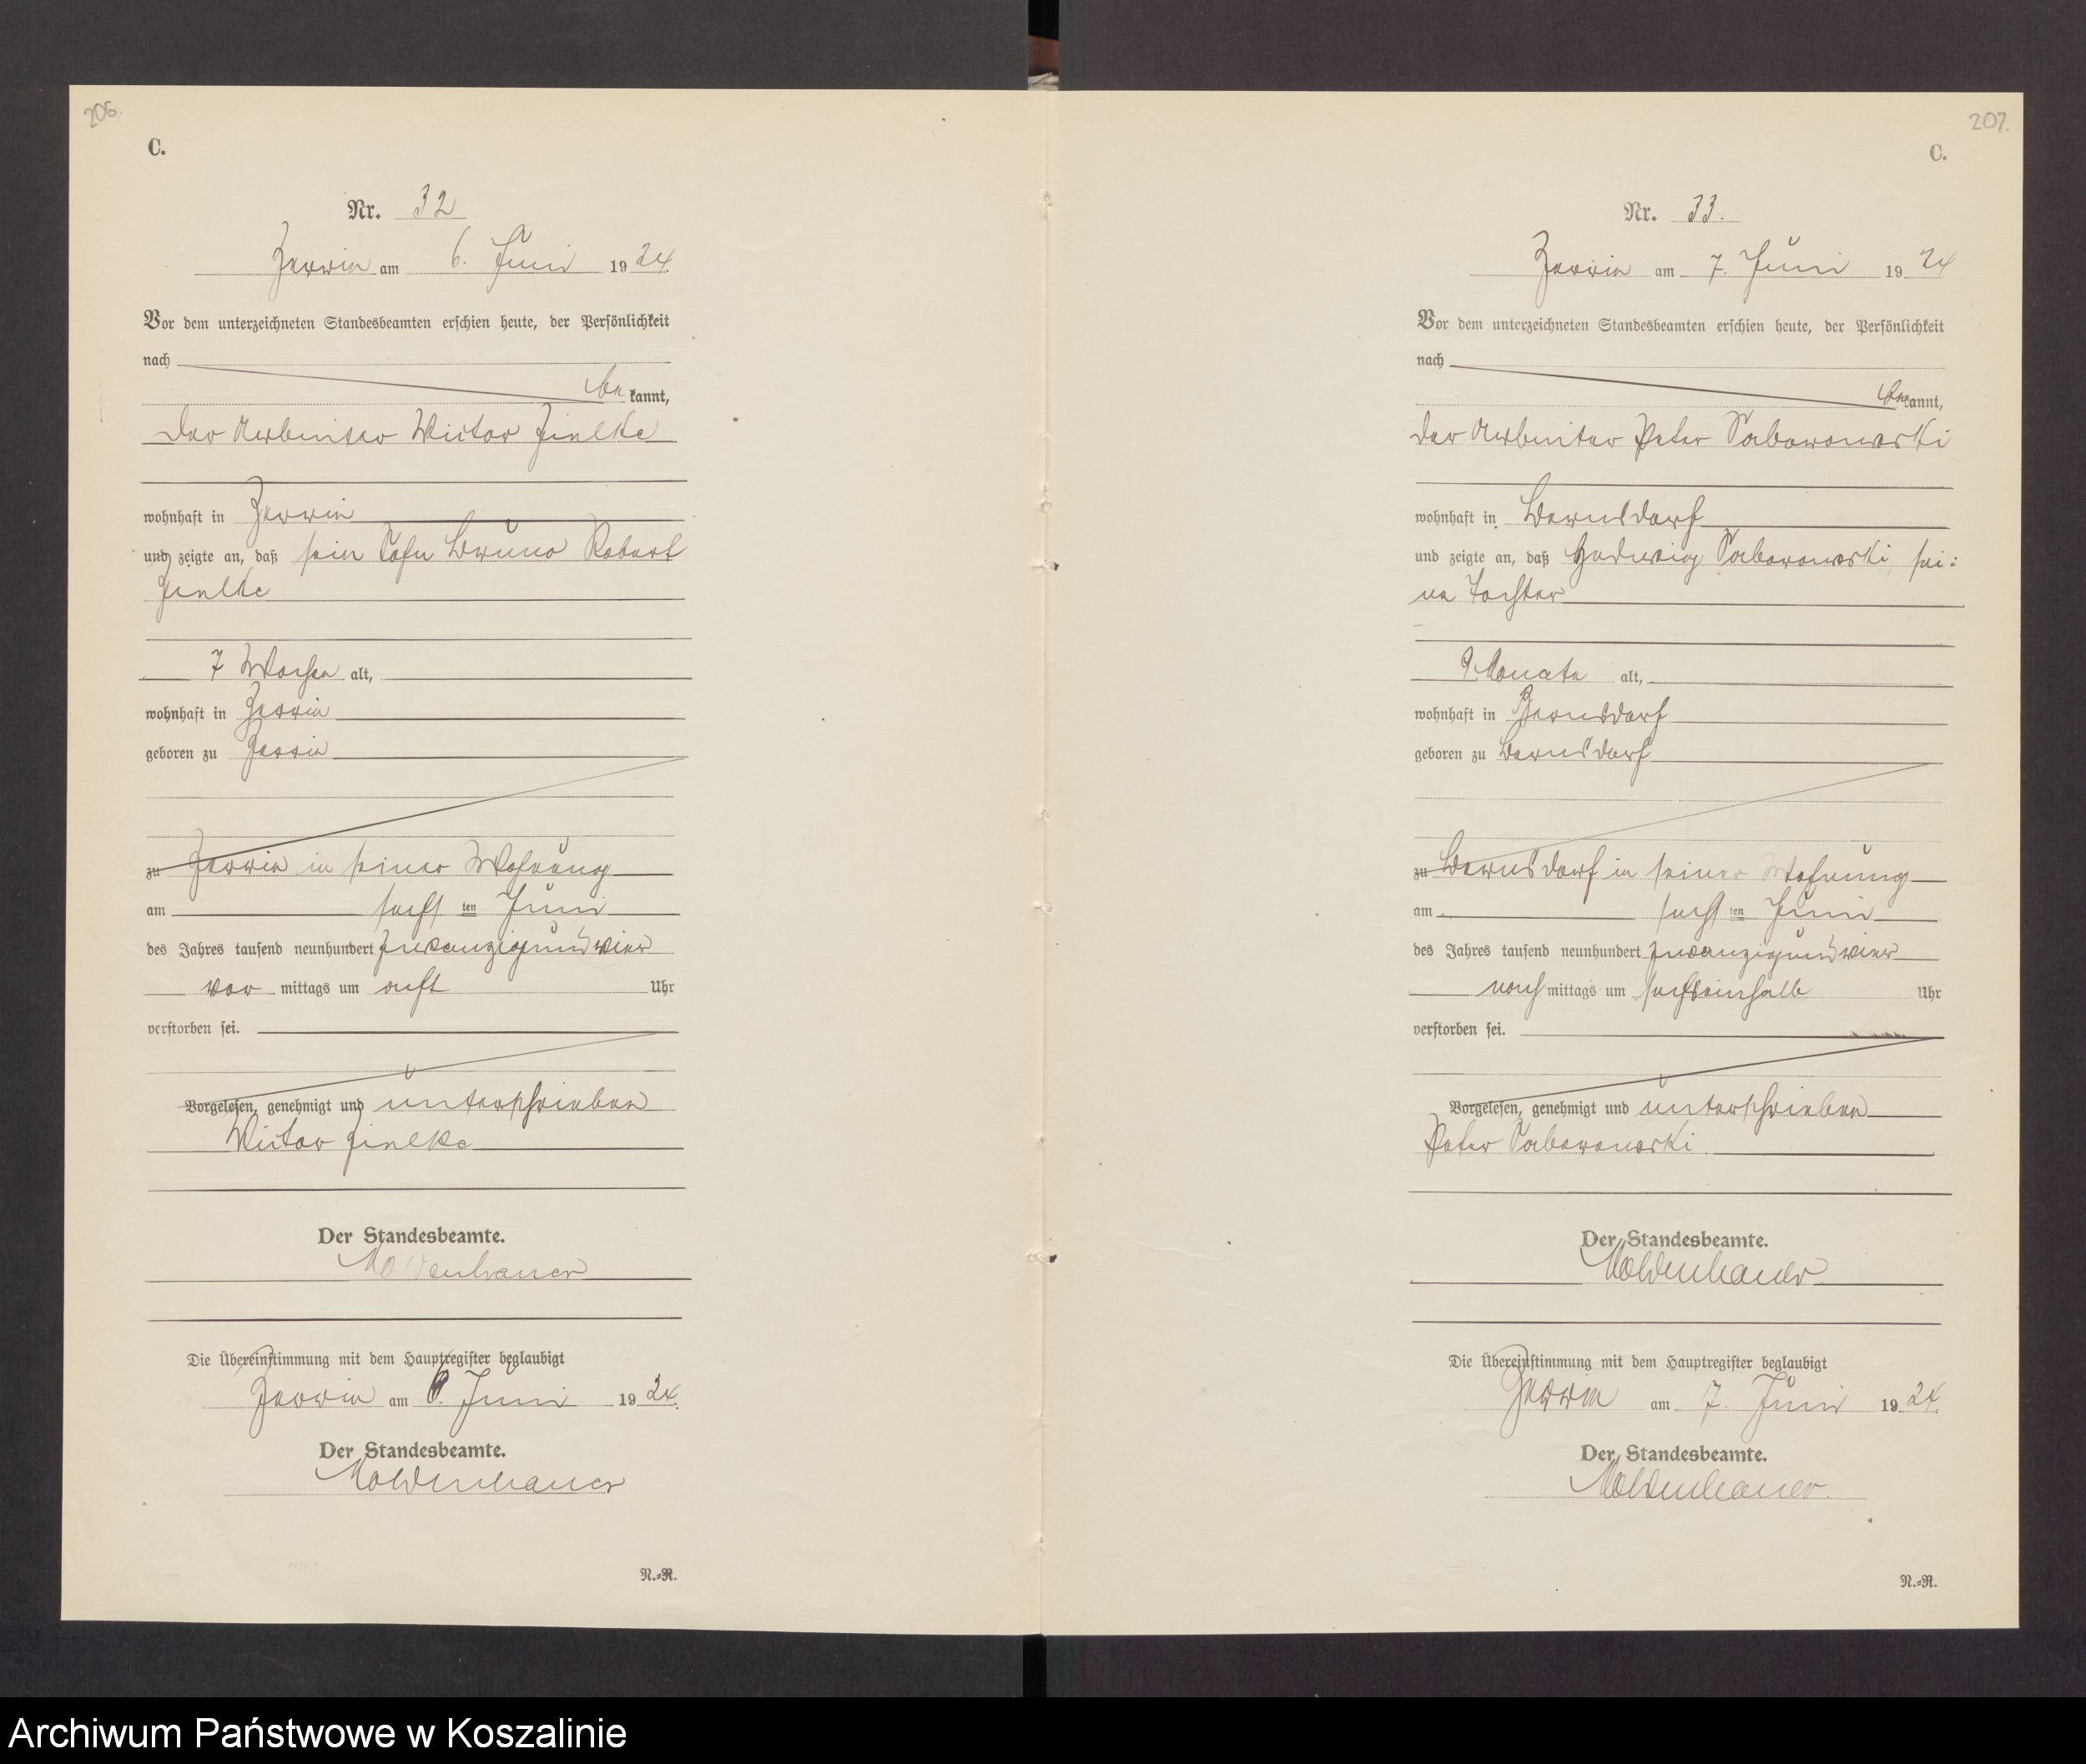 206.
C.
Nr. 32
Zerrin am 6. Juni 1924.
Vor dem unterzeichneten Standesbeamten erschien heute, der Persönlichkeit
nach
be kannt,
der Arbeiter Victor Zielke
wohnhaft in Zerrin
und zeigte an, daß sein Sohn Bruno Robert
Zielke
7 Wochen alt,
wohnhaft in Zerrin
geboren zu Zerrin
zu Zerrin in seiner Wohnung
am sechsten Juni
des Jahres tausend neunhundert zwanzigundvier
vor mittags um acht Uhr
verstorben sei.
Vorgelesen, genehmigt und unterschrieben
Victor Zielke
Der Standesbeamte.
Moldenhauer
Die Übereinstimmung mit dem Hauptregister beglaubigt
Zerrin am 6. Juni 1924.
Der Standesbeamte.
Moldenhauer
N.=R.
207.
C.
Nr. 33.
Zerrin am 7. Juni 1924
Vor dem unterzeichneten Standesbeamten erschien heute, der Persönlichkeit
nach
bekannt,
der Arbeiter Peter Saborowski
wohnhaft in Bernsdorf
und zeigte an, daß Hedwig Saborowski, sei=
ne Tochter
9 Monate alt,
wohnhaft in Bernsdorf
geboren zu Bernsdorf
zu Bernsdorf in seiner Wohnung
am sechsten Juni
des Jahres tausend neunhundert zwanzigundvier
nach mittags um sechseinhalb Uhr
verstorben sei.
Vorgelesen, genehmigt und unterschrieben
Peter Saborowski
Der Standesbeamte.
Moldenhauer
Die Übereinstimmung mit dem Hauptregister beglaubigt
Zerrin am 7. Juni 1924.
Der Standesbeamte.
Moldenhauer.
N.=R.
Archiwum Państwowe w Koszalinie